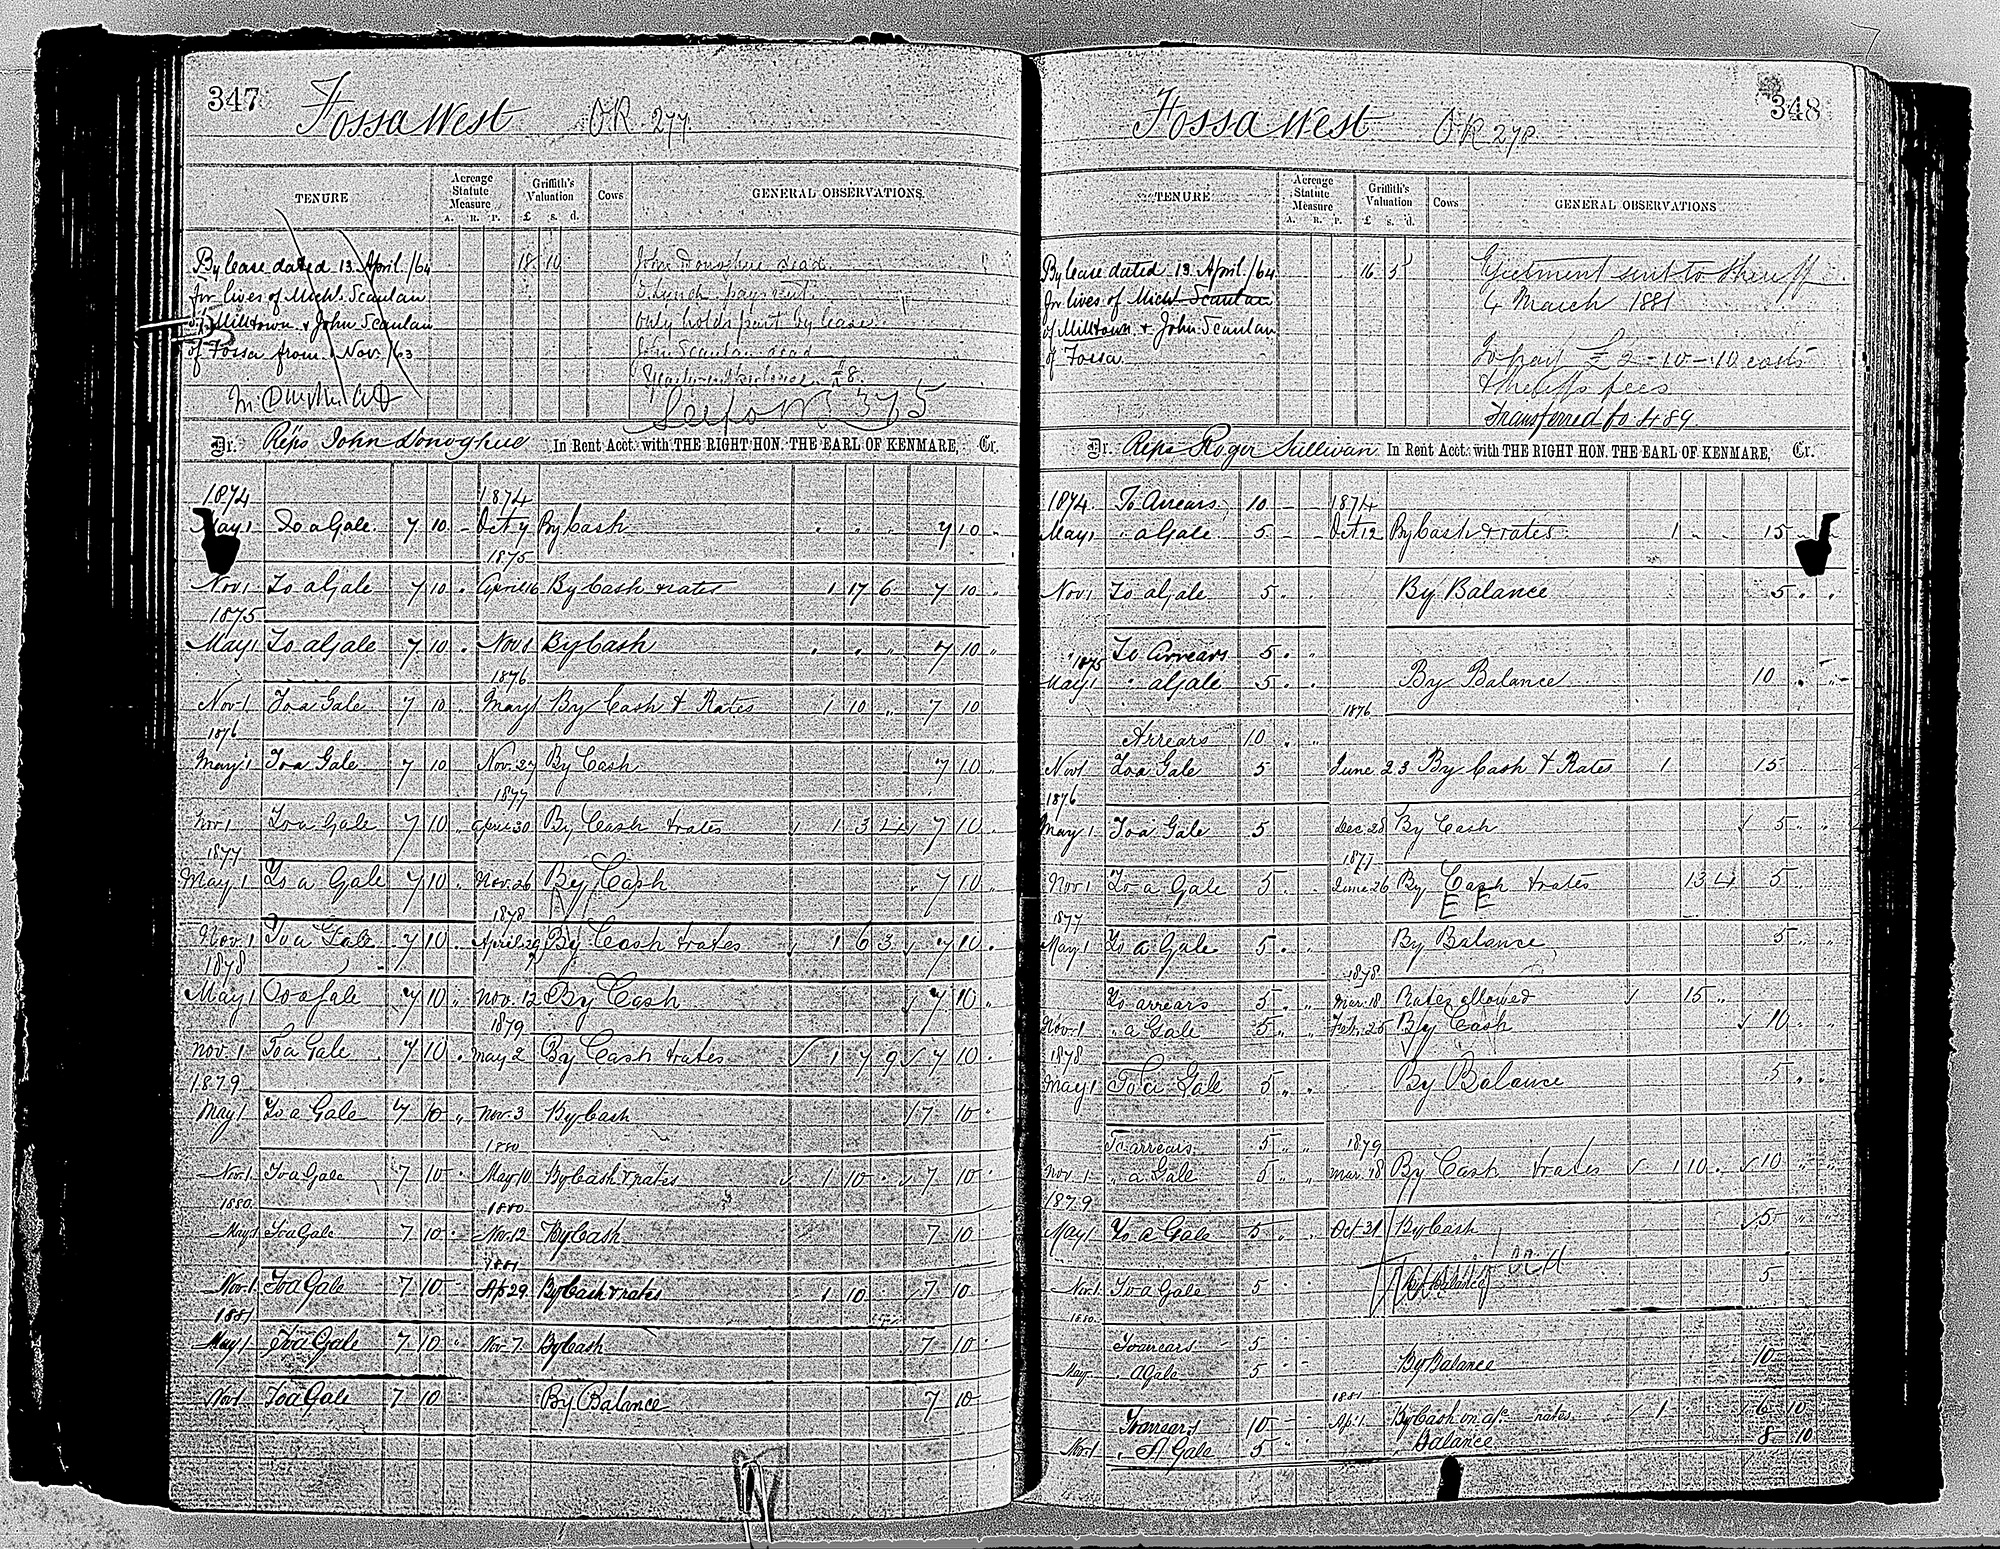 347
Fossa West OR 277.
TENURE
Acreage Statute Measure
A. R. P.
Griffith's Valuation
£ s. d.
Cows
GENERAL OBSERVATIONS.
By lease dated 13 April /64 18 10 John Donoghue dead
for lives of Michl. Scanlan
of Milltown & John Scanlan only holds part by lease.
of Fossa from 1 Nov. /63 John Scanlan dead
375
Dr. Reps John Donoghue In Rent Acct. with THE RIGHT HON. THE EARL OF KENMARE, Cr.
1874 1874
May 1 To a Gale 7 10 - Oct 7 By Cash 7 10
1875
Nov 1 To a Gale 7 10 April 16 By Cash & rates 1 17 6 7 10
1875
May 1 To a Gale 7 10 Nov. 8 By Cash 7 10
1876
Nov 1 To a Gale 7 10 May 1 By Cash & Rates 1 10 7 10
1876
May 1 To a Gale 7 10 Nov. 27 By Cash 7 10
1877
Nov 1 To a Gale 7 10 April 30 By Cash & rates 1 3 4 7 10
1877
May 1 To a Gale 7 10 Nov. 26 By Cash 7 10
1878
Nov. 1 To a Gale 7 10 April 29 By Cash & rates 1 6 3 7 10
1878
May 1 To a Gale 7 10 Nov. 12 By Cash 7 10
1879
Nov. 1 To a Gale 7 10 May 2 By Cash & rates 1 7 9 7 10
1879
May 1 To a Gale 7 10 Nov. 3 By Cash 7 10
1880
Nov. 1 To a Gale 7 10 May 10 By Cash & rates 1 10 7 10
1880. 1880
May 1 To a Gale 7 10 Nov. 12 By Cash 7 10
1881
Nov. 1 To a Gale 7 10 Ap 29 By Cash & rates 1 10 7 10
1881
May 1 To a Gale 7 10 Nov. 7 By Cash 7 10
Nov 1 To a Gale 7 10 By Balance 7 10
348
Fossa West OR 278.
TENURE
Acreage Statute Measure
A. R. P.
Griffith's Valuation
£ s. d.
Cows
GENERAL OBSERVATIONS
By lease dated 13 April /64 16 5 Ejectment sent to Sheriff
for lives of Michl. Scanlan 4 March 1881
of Milltown & John Scanlan
of Fossa. To pay £2-10-10 costs
& Sheriffs fees
Transferred fo 489.
Dr. Reps Roger Sullivan In Rent Acct. with THE RIGHT HON. THE EARL OF KENMARE, Cr.
1874 To Arrears, 10 - 1874
May 1 " a Gale 5 - - Oct 12 By Cash & rates 1 15
Nov 1 To a Gale 5 By Balance 5
To Arrears 5
1875
May 1 " a Gale 5 By Balance 10
1876
Arrears 10
Nov 1 To a Gale 5 June 23 By Cash & Rates 1 15
1876
May 1 To a Gale 5 Dec 28 By Cash 5
1877
Nov 1 To a Gale 5 June 26 By Cash & rates 13 4 5
E E
1877
May 1 To a Gale 5 By Balance 5
1878
To arrears 5 Mar. 18 Rates allowed 15
Nov. 1 " a Gale 5 By Cash 10
1878
May 1 To a Gale 5 By Balance 5
To arrears 5 1879
Nov 1 " a Gale 5 Mar. 18 By Cash & rates 1 10 10
1879
May 1 To a Gale 5 Oct 31 By Cash 5
Nov. 1 To a Gale 5 By Balance 5
1880
To arrears 5
May " a Gale 5 By Balance 10
1881
To arrears 10 Ap. 1 By Cash on a/c rates 1 6 10
Nov. 1 " A Gale 5 " Balance 8 10